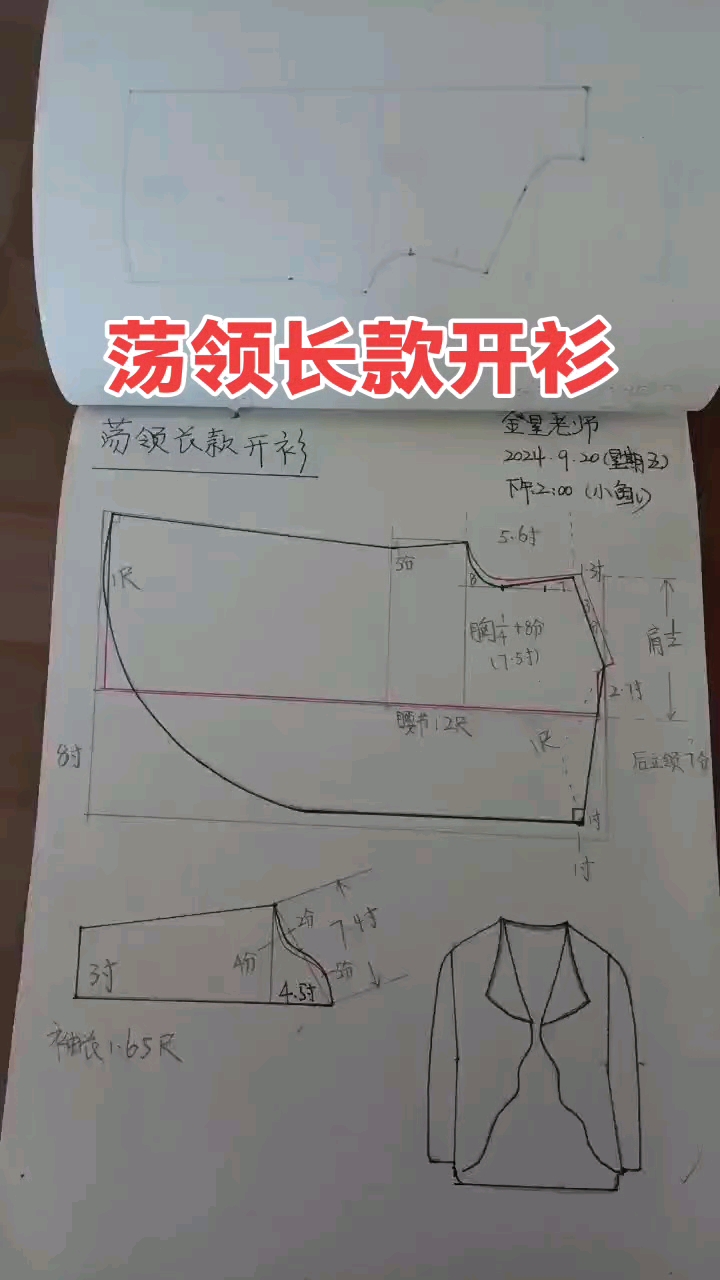 荡领长款开衫
荡领长款开衫
金星老师
2024.9.20(星期五)
下午2:00(小鱼儿)
5.6寸
1尺
5分
胸1/4+8分
(7.5寸)
肩1/2
2.7寸
腰节1.2尺
1尺
后立领7分
8寸
1寸
1寸
7.4寸
2分
4分
5分
3寸
4.5寸
袖长1.65尺